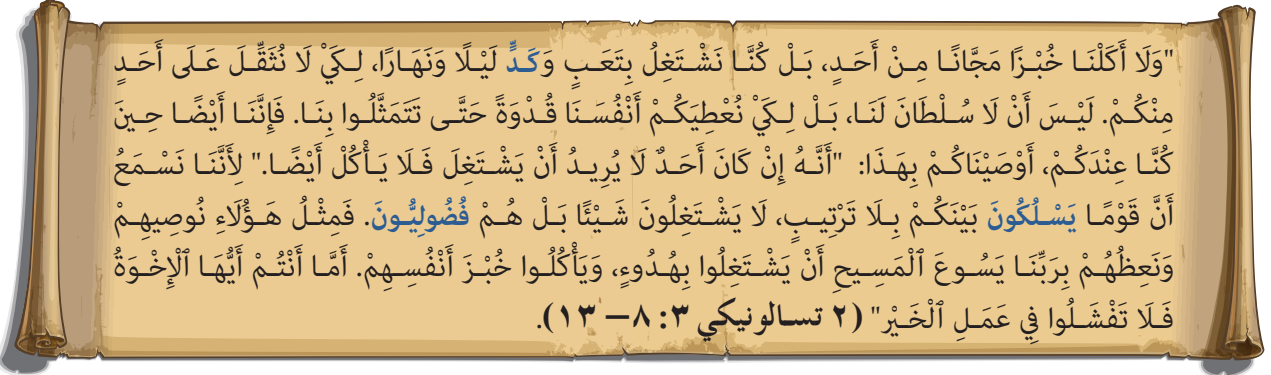 "وَلَا أَكَلْنَا خُبْزًا مَجَّانًا مِنْ أَحَدٍ، بَلْ كُنَّا نَشْتَغِلُ بِتَعَبٍ وَكَدٍّ لَيْلًا وَنَهَارًا، لِكَيْ لَا نُثَقِّلَ عَلَى أَحَدٍ
مِنْكُمْ. لَيْسَ أَنْ لَا سُلْطَانَ لَنَا، بَلْ لِكَيْ نُعْطِيَكُمْ أَنْفُسَنَا قُدْوَةً حَتَّى تَتَمَثَّلُوا بِنَا. فَإِنَّنَا أَيْضًا حِينَ
كُنَّا عِنْدَكُمْ، أَوْصَيْنَاكُمْ بِهَذَا: "أَنَّهُ إِنْ كَانَ أَحَدٌ لَا يُرِيدُ أَنْ يَشْتَغِلَ فَلَا يَأْكُلْ أَيْضًا." لِأَنَّنَا نَسْمَعُ
أَنَّ قَوْمًا يَسْلُكُونَ بَيْنَكُمْ بِلَا تَرْتِيبٍ، لَا يَشْتَغِلُونَ شَيْئًا بَلْ هُمْ فُضُولِيُّونَ. فَمِثْلُ هَؤُلَاءِ نُوصِيهِمْ
وَنَعِظُهُمْ بِرَبِّنَا يَسُوعَ ٱلْمَسِيحِ أَنْ يَشْتَغِلُوا بِهُدُوءٍ، وَيَأْكُلُوا خُبْزَ أَنْفُسِهِمْ. أَمَّا أَنْتُمْ أَيُّهَا ٱلْإِخْوَةُ
فَلَا تَفْشَلُوا فِي عَمَلِ ٱلْخَيْرِ" (٢ تسالونيكي ٣: ٨– ١٣).